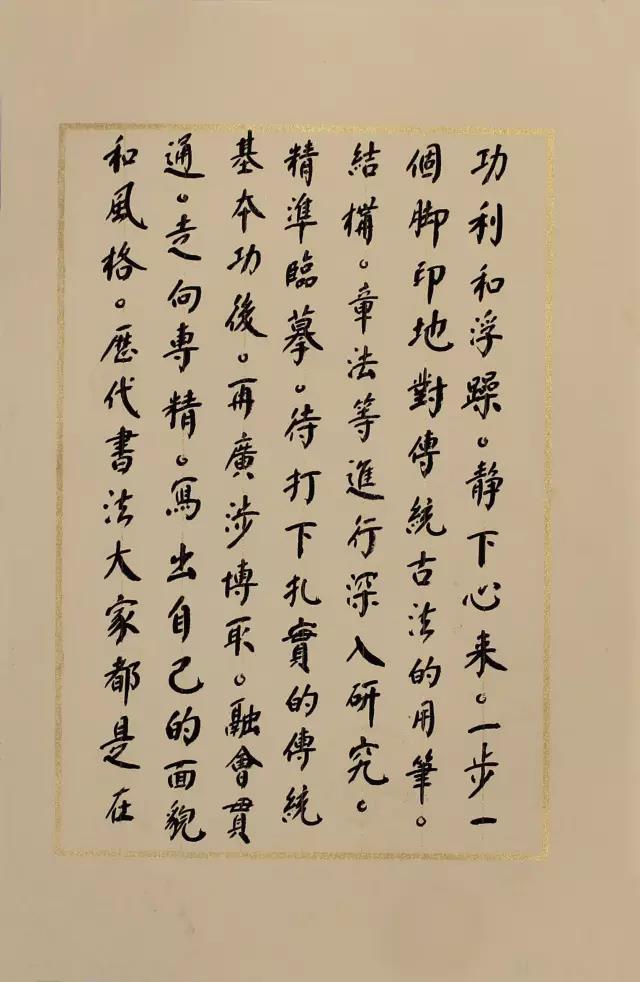 功利和浮躁。静下心来。一步一
個脚印地對傳統古法的用筆。
結構。章法等進行深入研究。
精準臨摹。待打下扎實的傳統
基本功後。再廣涉博取。融會貫
通。走向專精。寫出自己的面貌
和風格。歷代書法大家都是在